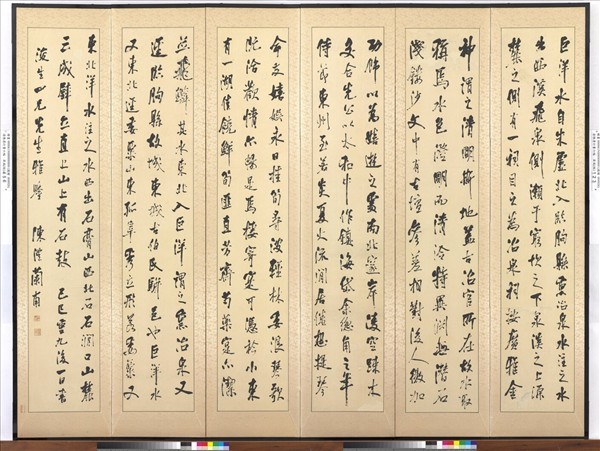 巨洋水自朱虛北入臨朐縣熏冶泉水注之水
出西溪飛泉側瀨于窮坎之下泉溪之上源
麓之側有一祠目之為冶泉祠按廣雅金
神謂之清明斯地蓋古冶官所在故水取
稱焉水色澄明而清泠特異淵無潛石
淺鏤沙文中有古壇參差相對後人微加
功飾以為嬉遊之處南北邃岸凌空疎木
交合先公以太和中作鎮海岱余總角之年
侍節東州至若炎夏火流閒居倦想提琴
命友嬉娛永日桂筍尋波輕林委浪琴歌
既洽歡情亦暢是焉棲寄寔可憑衿小東
有一湖佳饒鮮筍匪直芳齊芍藥寔亦潔
並飛鱗其水東北入巨洋謂之熏冶泉又
逕臨朐縣故城東城古伯氏駢邑也巨洋水
又東北逕委粟山東孤阜秀立形若委粟又
東北洋水注之水西出石膏山西北石澗口山麓
三成壁立直上山上有石鼓 己巳九後一日書
生四兄先生雅鑒 陳澧蘭甫